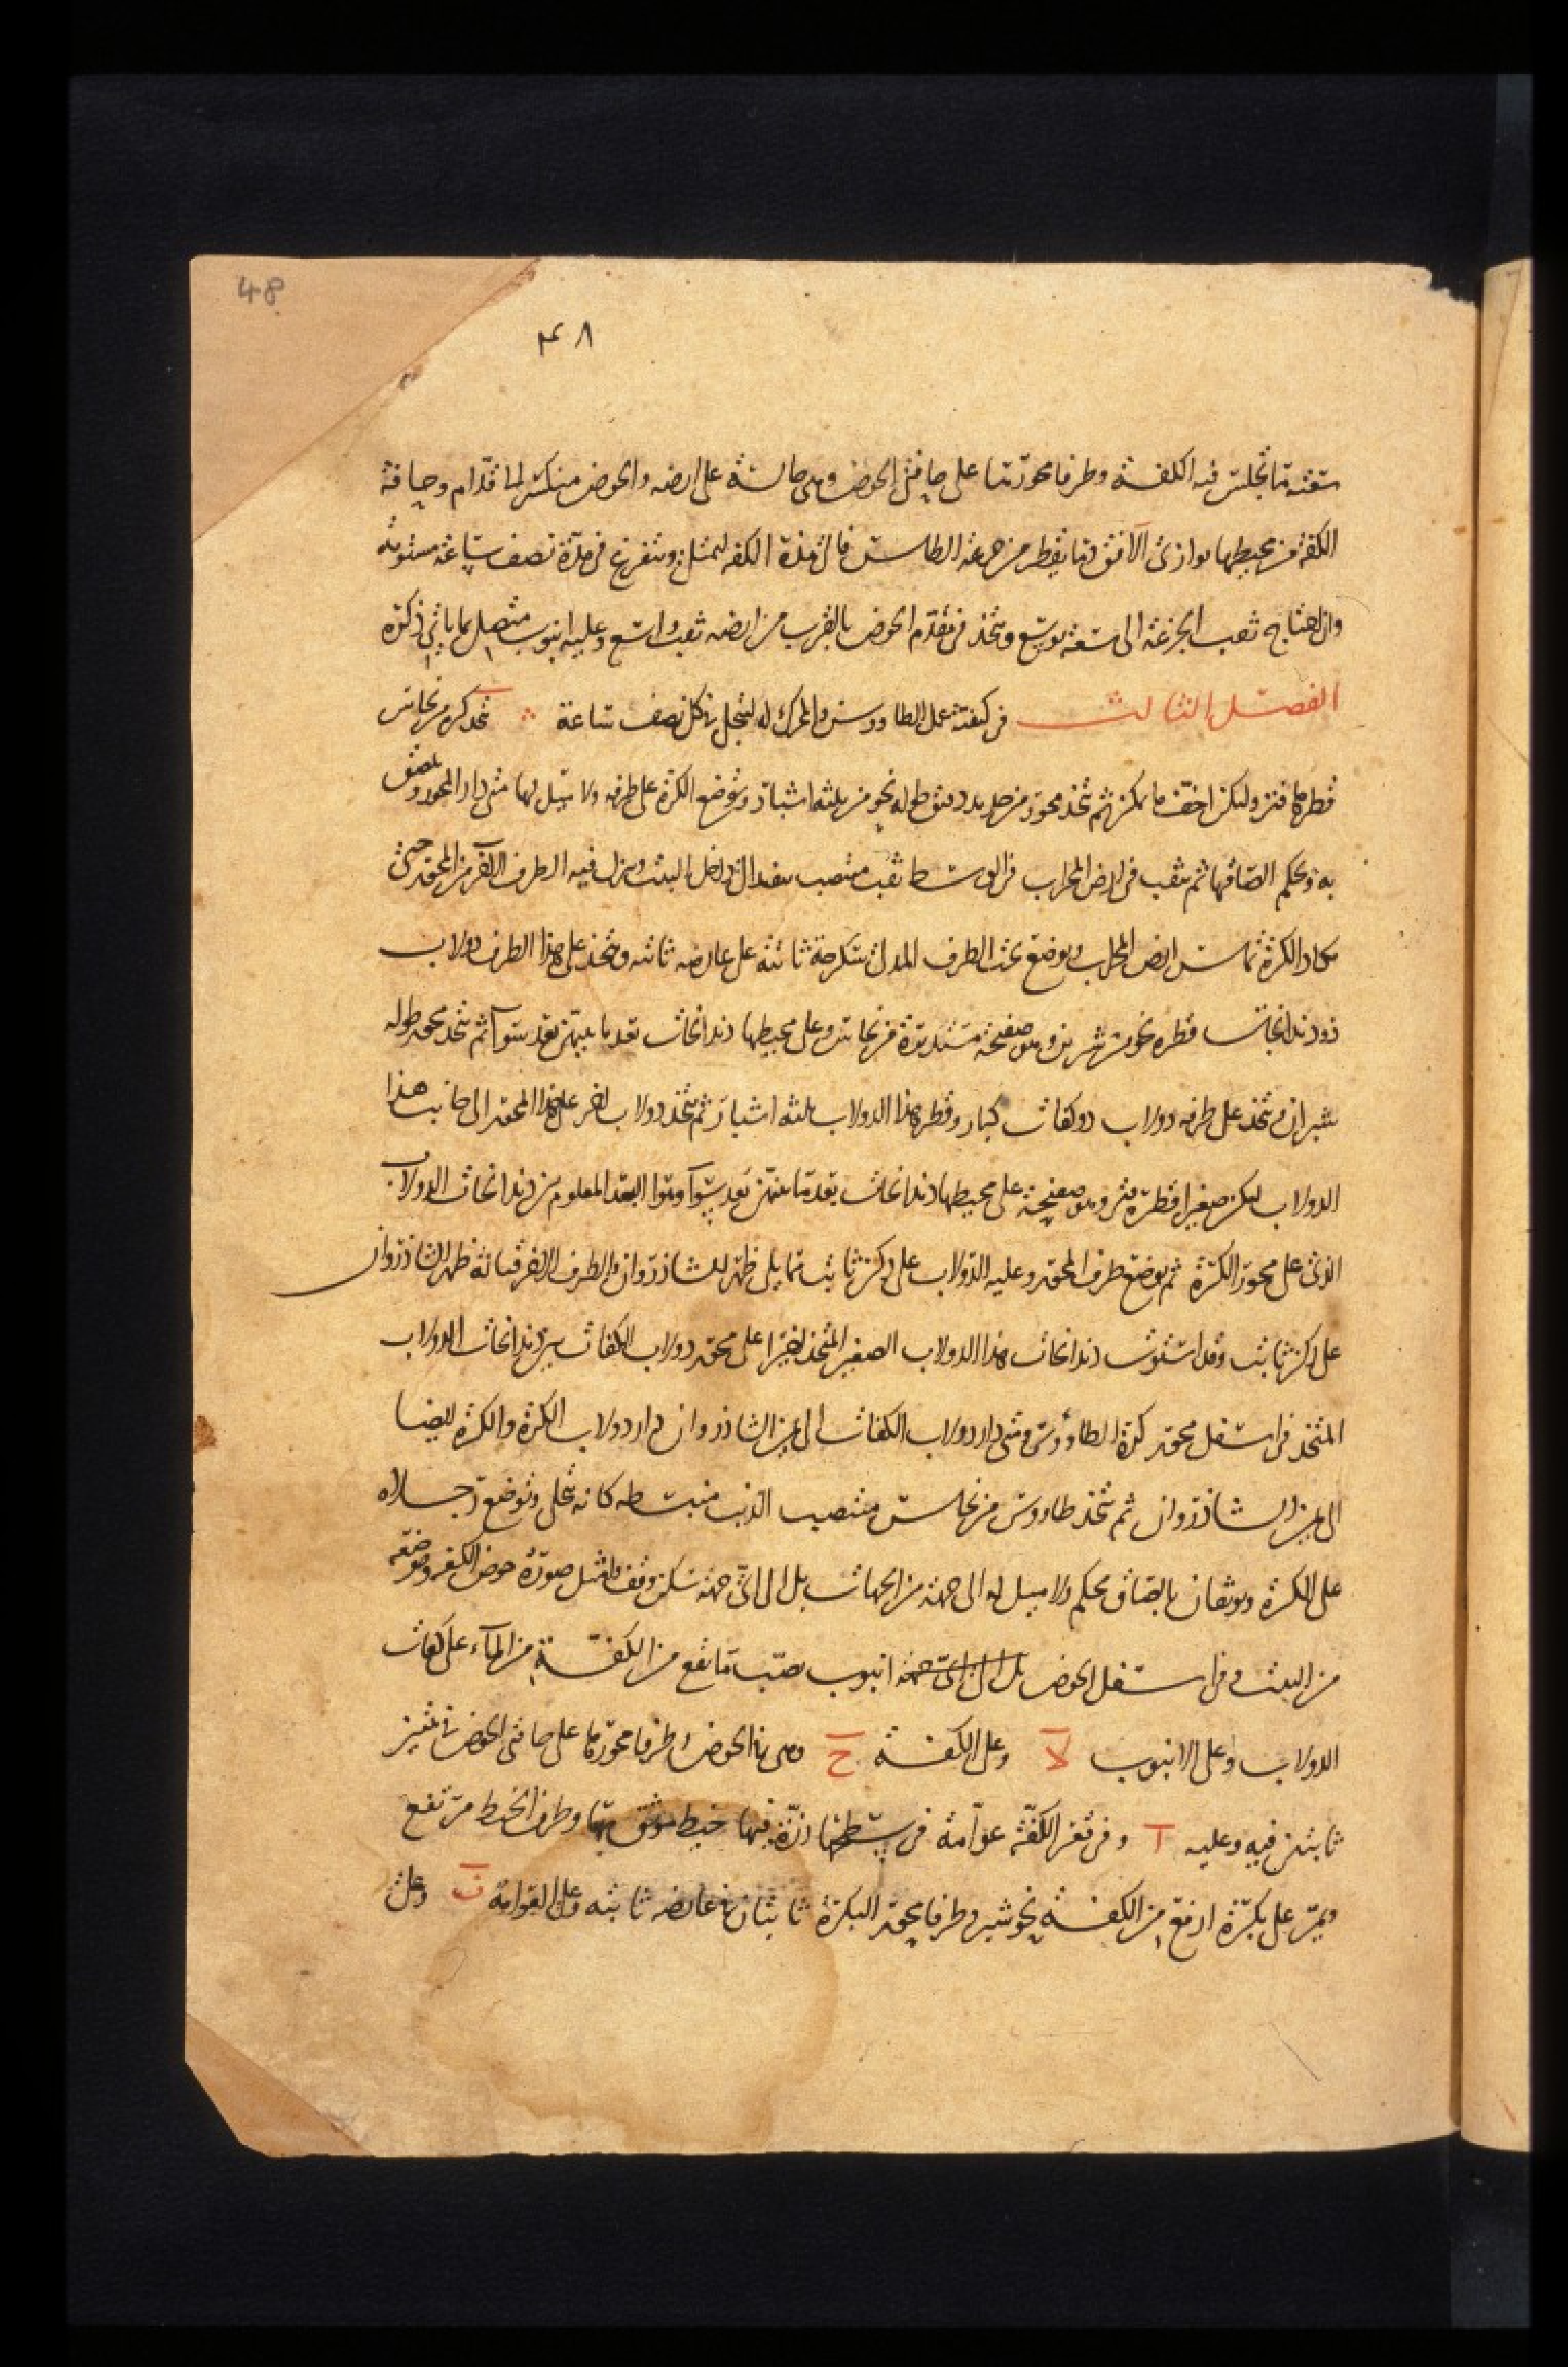 48
٤٨
سعته ما تجلس فيه الكفة وطرفا محورتها على حافتى الحوض وهى جالسة على ارضه والحوض منكس الى قدام وحافة
الكفة من محيطها يوازى الافق وما يقطر من جزعة الطاس فالى هذه الكفة لتمتلئ وتتفرغ فى مدة نصف ساعة مستوية
وان احتاج ثقب الجزعة الى سعة يوسع ويتخذ فى مقدم الحوض بالقرب من ارضه ثقب واسع وعليه انبوب متصل بما ياتى ذكره
الفصل الثالث فى كيفية عمل الطاووس والمحرك له لينجلى فى كل نصف ساعة يتخذ كرة من نحاس
قطرها فتر وليكن اخف ما يمكن ثم يتخذ محور من حديد دقيق طوله نحو من ثلثة اشبار وتوضع الكرة على طرفه ولا ميل لها متى دار المحور وتلصق
به ويحكم الصاقها ثم يثقب فى ارض المحراب فى الوسط ثقب منتصب ينفذ الى داخل البيت وينزل فيه الطرف الاخر من المحور حتى
تكاد الكرة تماس ارض المحراب ويوضع تحت الطرف المدلى سكرجة ثابتة على عارضة ثابته ويتخذ على هذا الطرف دولاب
ذو دندانجات قطره نحو من شبرين وهو صفيحة مستديرة من نحاس وعلى محيطها دندانجات بعد ما بينهن بعد سوآ ثم يتخذ محور طوله
شبران ويتخذ على طرفه دولاب ذو كفات كبار وقطر هذا الدولاب ثلثة اشبار ثم يتخذ دولاب اخر على هذا المحور الى جانب هذا
الدولاب ليكن صغيرا قطره فتر وهو صفيحة على محيطها دندانجات بعد ما بينهن بعد سوآ وهو البعد المعلوم من دندانجات الدولاب
الذى على محور الكرة ثم يوضع طرف المحور وعليه الدولاب على ركن ثابت مما يلى ظهر الشاذروان والطرف الاخر قبالة ظهر الشاذروان
على ركن ثابت وقد استوت دندانجات هذا الدولاب الصغير المتخذ اخيرا على محور دولاب الكفات بين دندانجات الدولاب
المتخذ فى اسفل محور كرة الطاووس ومتى دار دولاب الكفات الى يمين الشاذروان دار دولاب الكرة والكرة ايضا
الى يمين الشاذروان ثم يتخذ طاووس من نحاس منتصب الذنب منبسطه كانه يجلى وتوضع رجلاه
على الكرة ويوثقان بالصاق محكم ولا ميل له الى جهة من الجهات بل الى اى جهة سكن وقف وامثل صورة حوض الكفة وموضعه
من البيت وفى اسفل الحوض بل الى اى جهة انبوب يصب ما يقع من الكفة من المآء على كفات
الدولاب وعلى الانبوب لا وعلى الكفة ح وهى فى الحوض وطرفا محورها على حافتى الحوض فى ثقبين
ثابتين فيه وعليه ا وفى قعر الكفة عوامة فى سطحها زرة فيها خيط موثق بها وطرف الخيط مرتفع
ويمر على بكرة ارفع من الكفة بنحو شبر وطرفا محور البكرة ثابتان فى عارضة ثابته وعلى العوامة ف وعلى